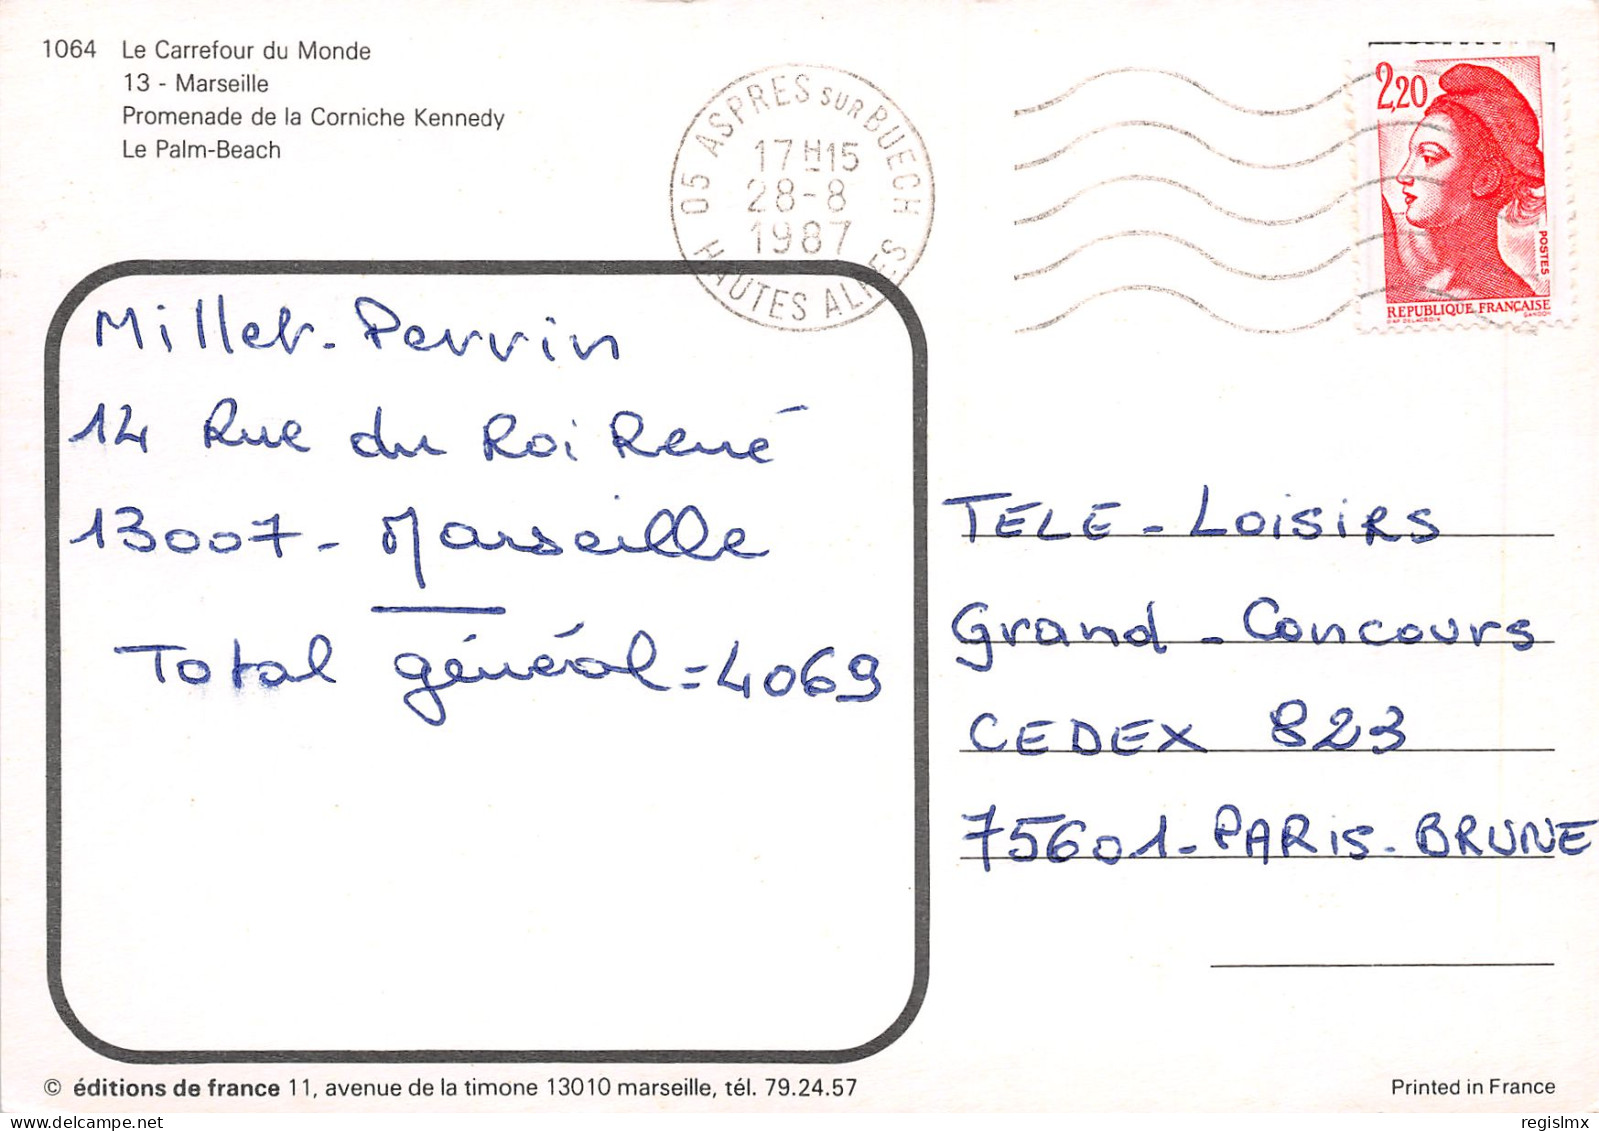 1064 Le Carrefour du Monde
13 - Marseille
Promenade de la Corniche Kennedy
Le Palm-Beach
05 ASPRES SUR BUECH
17H15
28-8
1987
HAUTES ALPES
2,20
POSTES
REPUBLIQUE FRANÇAISE
D'AP. DELACROIX GANDON
Millet-Perrin
14 Rue du Roi René
13007 - Marseille
Total général = 4069
TELE - LOISIRS
Grand - Concours
CEDEX 823
75601 - PARIS - BRUNE
© éditions de france 11, avenue de la timone 13010 marseille, tél. 79.24.57
Printed in France
regislmx